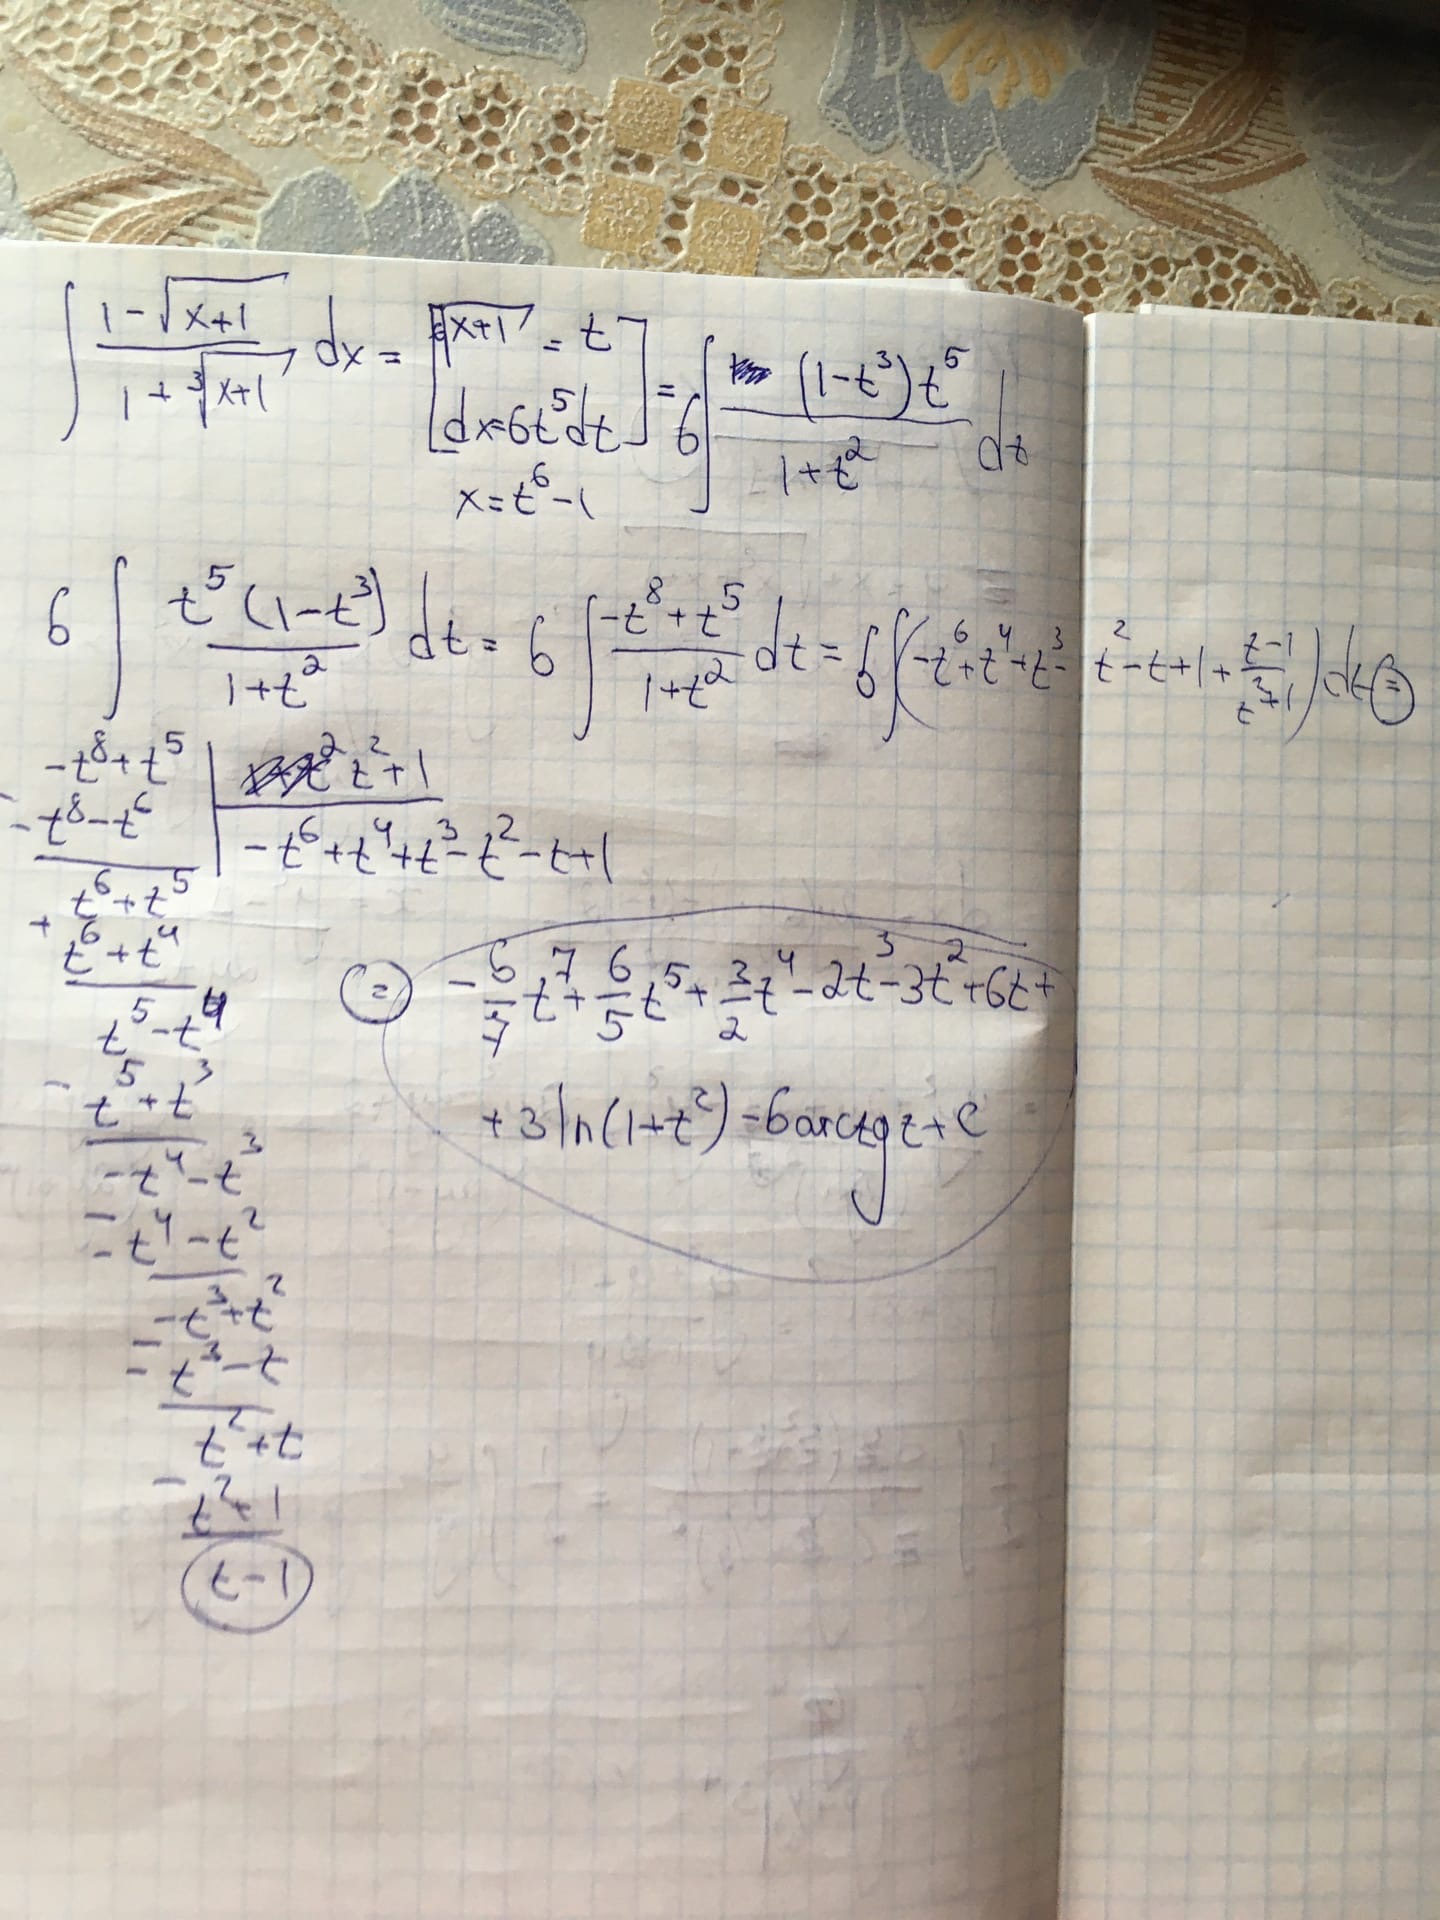 ∫ (1-√(x+1))/(1+∛(x+1)) dx = [⁶√(x+1) = t
dx=6t⁵dt] = 6∫ (1-t³)t⁵/(1+t²) dt
x=t⁶-1
6∫ t⁵(1-t³)/(1+t²) dt = 6∫ (-t⁸+t⁵)/(1+t²) dt = 6∫(-t⁶+t⁴+t³-t²-t+1+(t-1)/(t²+1))dt =
-t⁸+t⁵ | t²+1
- -t⁸-t⁶ | -t⁶+t⁴+t³-t²-t+1
t⁶+t⁵
+ t⁶+t⁴
t⁵-t⁴
- t⁵+t³
-t⁴-t³
- -t⁴-t²
-t³+t²
- -t³-t
t²+t
- t²+1
t-1
= -6/7 t⁷+6/5 t⁵+3/2 t⁴-2t³-3t²+6t+
+3ln(1+t²)-6arctgt+c